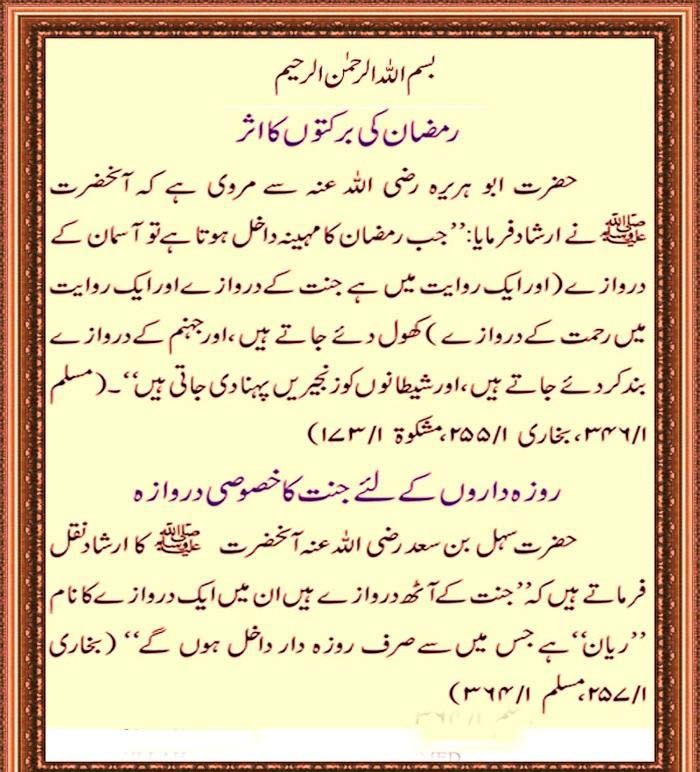 بسم اللہ الرحمٰن الرحیم
رمضان کی برکتوں کا اثر
حضرت ابو ہریرہ رضی اللہ عنہ سے مروی ہے کہ آنحضرت
ﷺ نے ارشاد فرمایا:’’جب رمضان کا مہینہ داخل ہوتا ہے تو آسمان کے
دروازے (اور ایک روایت میں ہے جنت کے دروازے اور ایک روایت
میں رحمت کے دروازے) کھول دئے جاتے ہیں، اور جہنم کے دروازے
بند کر دئے جاتے ہیں، اور شیطانوں کو زنجیریں پہنا دی جاتی ہیں‘‘۔ (مسلم
۳۴۶/۱، بخاری ۲۵۵/۱، مشکوۃ ۱۷۳/۱)
روزہ داروں کے لئے جنت کا خصوصی دروازہ
حضرت سہل بن سعد رضی اللہ عنہ آنحضرت ﷺ کا ارشاد نقل
فرماتے ہیں کہ’’جنت کے آٹھ دروازے ہیں ان میں ایک دروازے کا نام
’’ریان‘‘ ہے جس میں سے صرف روزہ دار داخل ہوں گے‘‘ (بخاری
۲۵۷/۱، مسلم ۳۶۴/۱)